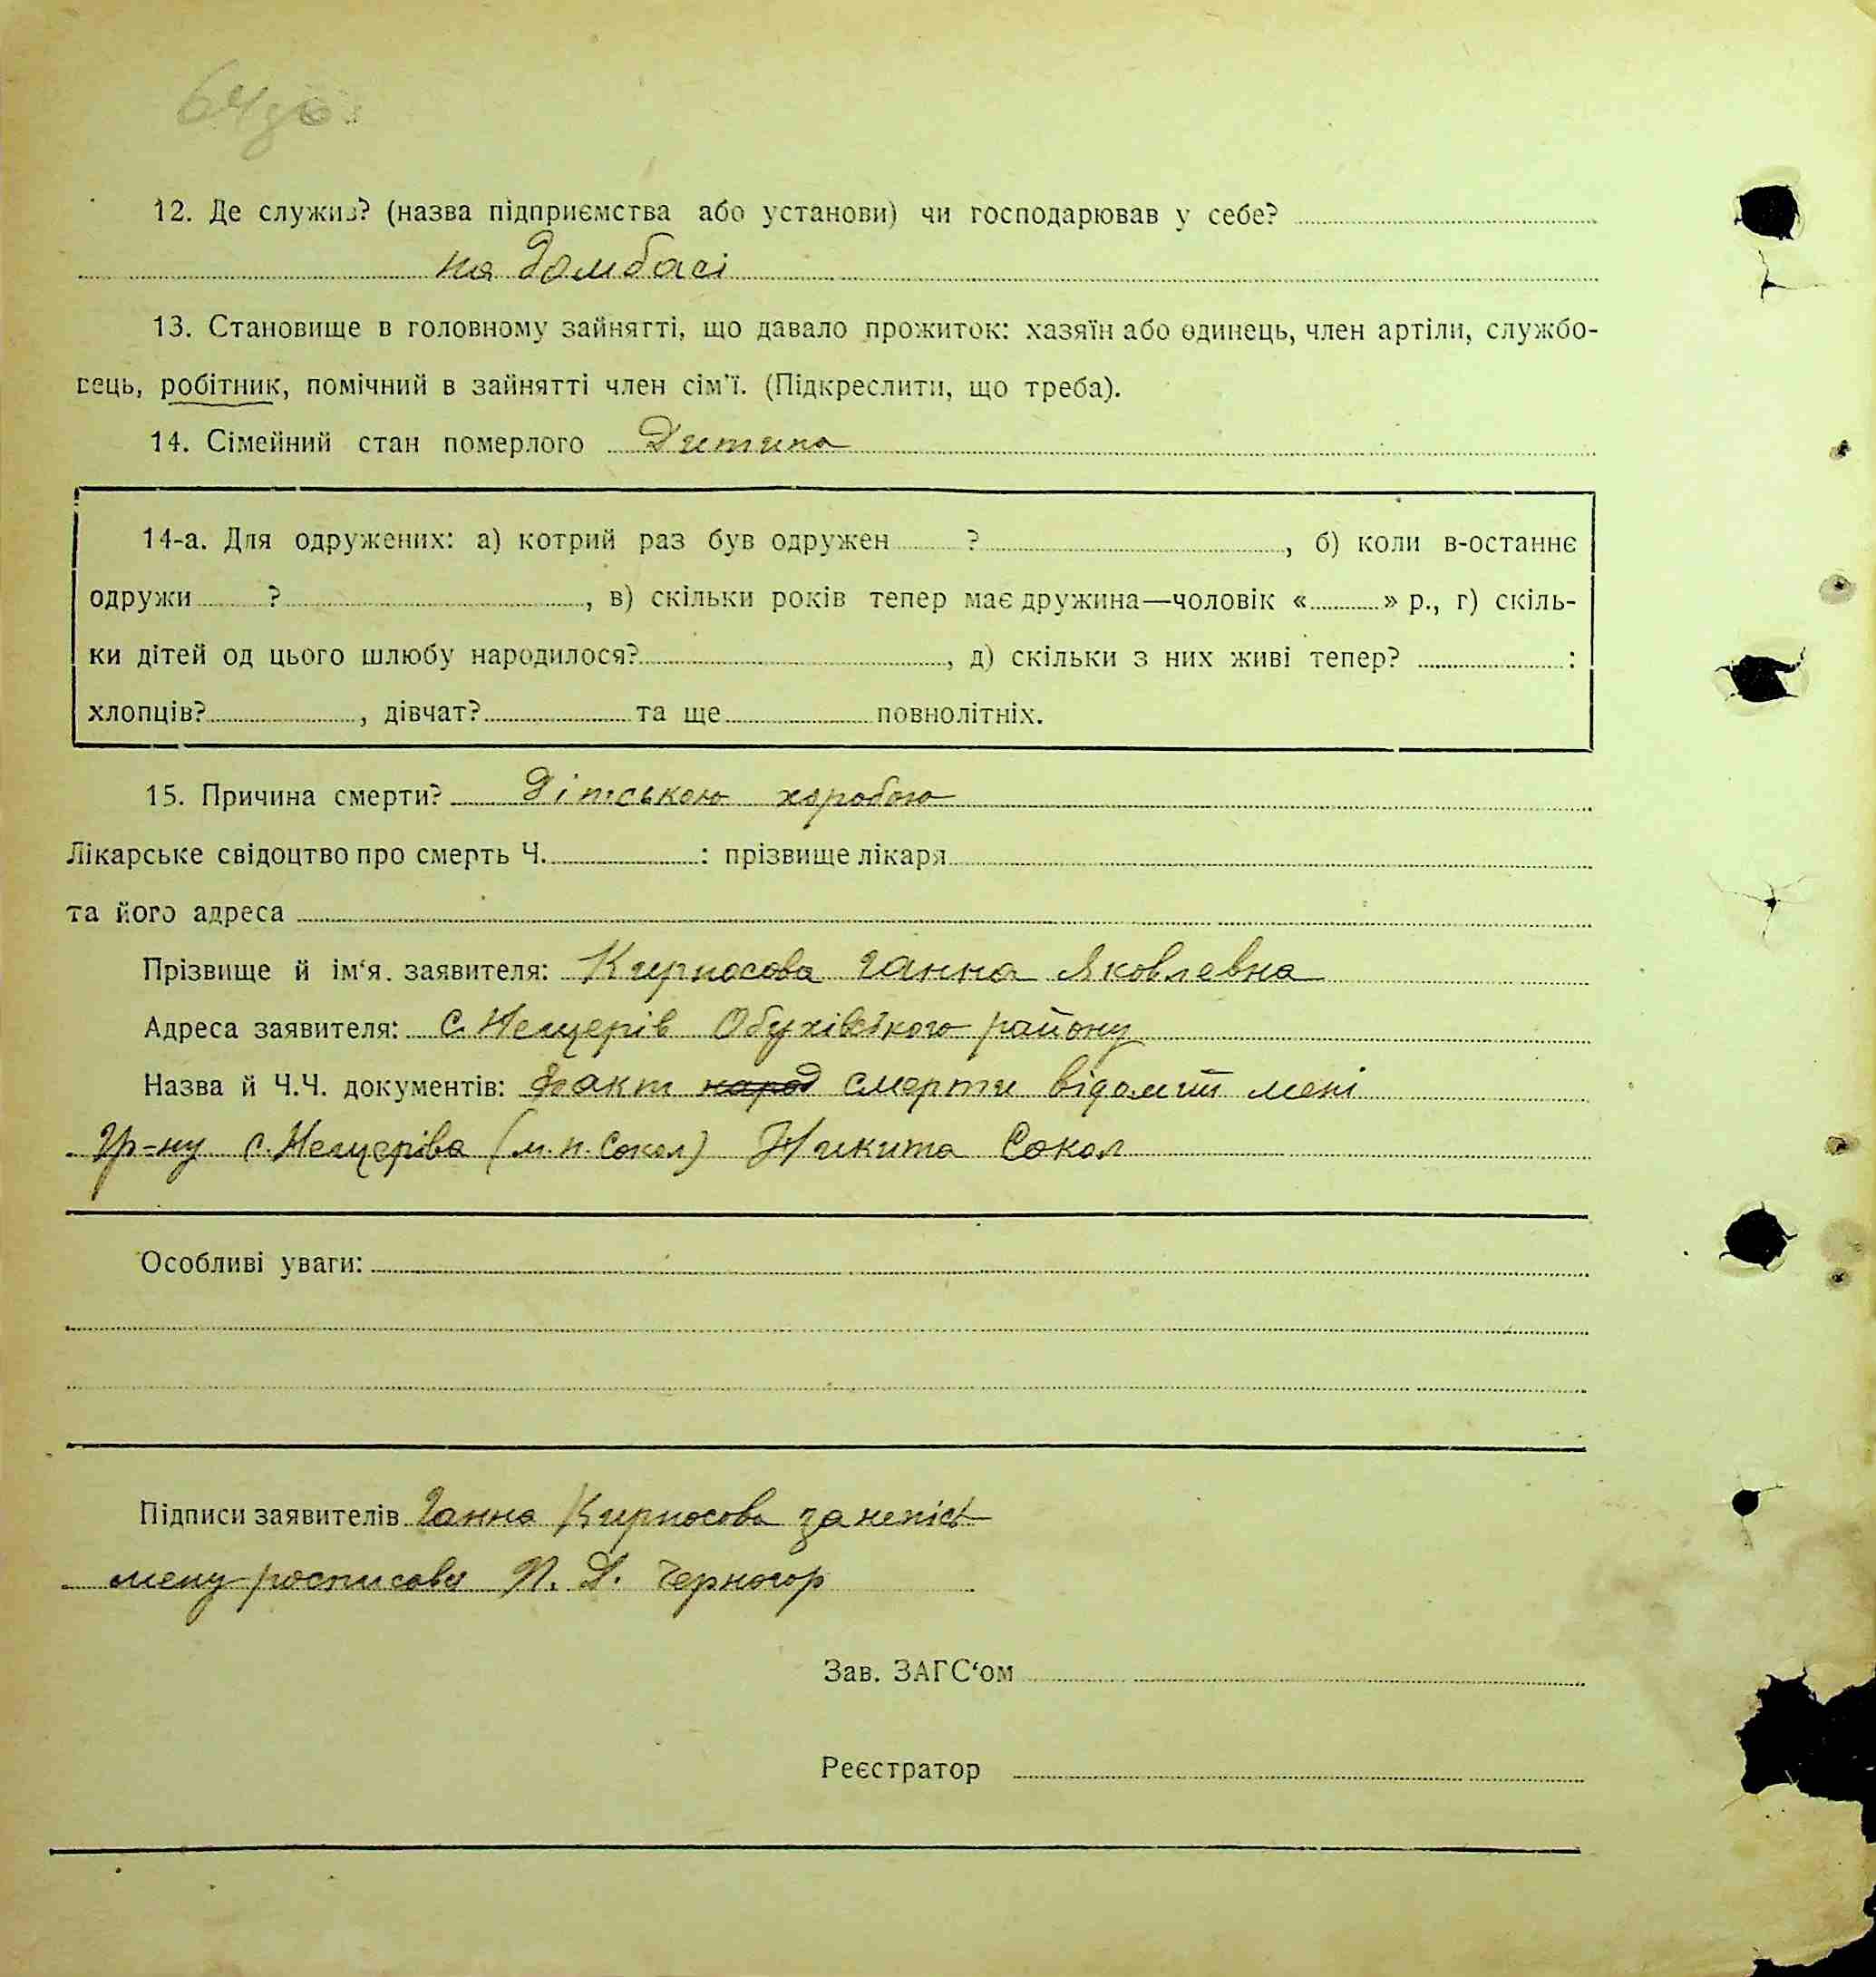 12. Де служив? (назва підприємства або установи) чи господарював у себе?
на домбасі
13. Становище в головному зайнятті, що давало прожиток: хазяїн або одинець, член артіли, службо-
вець, робітник, помічний в зайнятті член сім'ї. (Підкреслити, що треба).
14. Сімейний стан померлого Дитина
14-а. Для одружених: а) котрий раз був одружен ? , б) коли в-останнє
одружи ? , в) скільки років тепер має дружина—чоловік « » р., г) скіль-
ки дітей од цього шлюбу народилося? , д) скільки з них живі тепер? :
хлопців? , дівчат? та ще повнолітніх.
15. Причина смерти? Дітською хоробою
Лікарське свідоцтво про смерть Ч. : прізвище лікаря
та його адреса
Прізвище й ім'я. заявителя: Кирносова Ганна Яковлевна
Адреса заявителя: с. Нещерів Обухівського району
Назва й Ч.Ч. документів: факт народ смерти відомий мені
Гр-ну с. Нещеріва (м. п. Сокол) Никита Сокол
Особливі уваги:
Підписи заявителів Ганна Кирносова за непісь
мену росписовсь П. Д. Черногор
Зав. ЗАГС'ом
Реєстратор